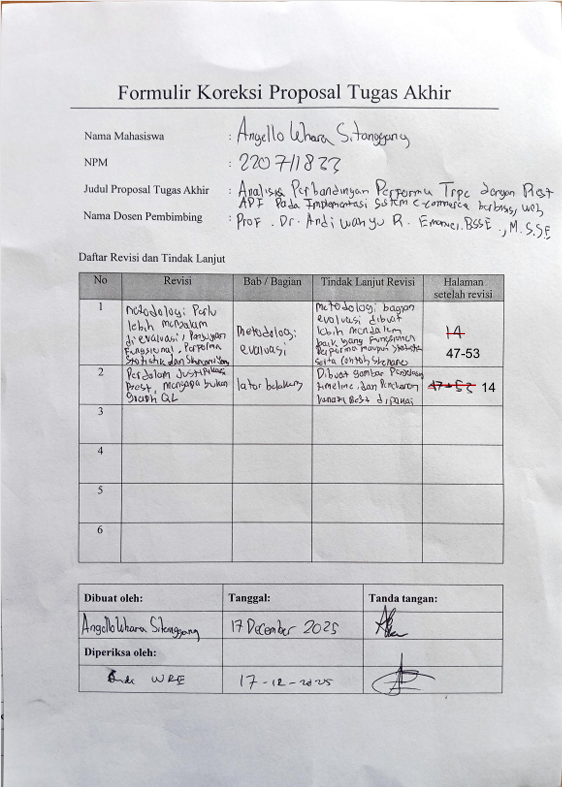 Formulir Koreksi Proposal Tugas Akhir
Nama Mahasiswa : Angello Khara Sitanggang
NPM : 220711833
Judul Proposal Tugas Akhir : Analisis Perbandingan Performa Trpc dengan Rest
API Pada Implementasi Sistem e-commerce berbasis web
Nama Dosen Pembimbing : Prof. Dr. Andi Wahyu R. Emanuel. BSSE., M.S.SE
Daftar Revisi dan Tindak Lanjut
No Revisi Bab / Bagian Tindak Lanjut Revisi Halaman setelah revisi
1
Metodologi Perlu
lebih mendalam
di evaluasi, Pengujian
Fungsional, Performa
Statistik dan
Metodologi
evaluasi
Metodologi bagian
evaluasi dibuat
lebih mendalam
baik yang fungsional
Performa maupun statistik
serta contoh skenario
14
47-53
2
Perdalam Justifikasi
Rest, mengapa bukan
Graph QL
latar belakang
Dibuat gambar
timeline, dan
Rest dipakai
47-53 14
3
4
5
6
Dibuat oleh: Tanggal: Tanda tangan:
Angello Khara Sitanggang 17 December 2025
Diperiksa oleh:
WRE 17-12-2025